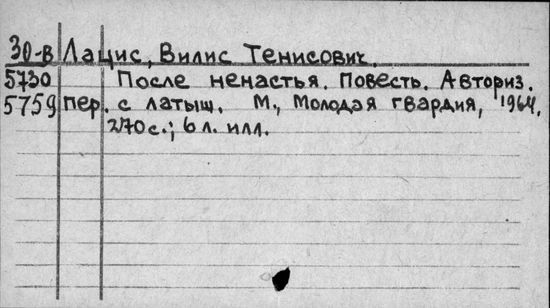 30-в Лацис, Вилис Тенисович.
5730 После ненастья. Повесть. Авториз.
5759 пер. с латыш. М., Молодая гвардия, 1964.
270с.; 6 л. илл.